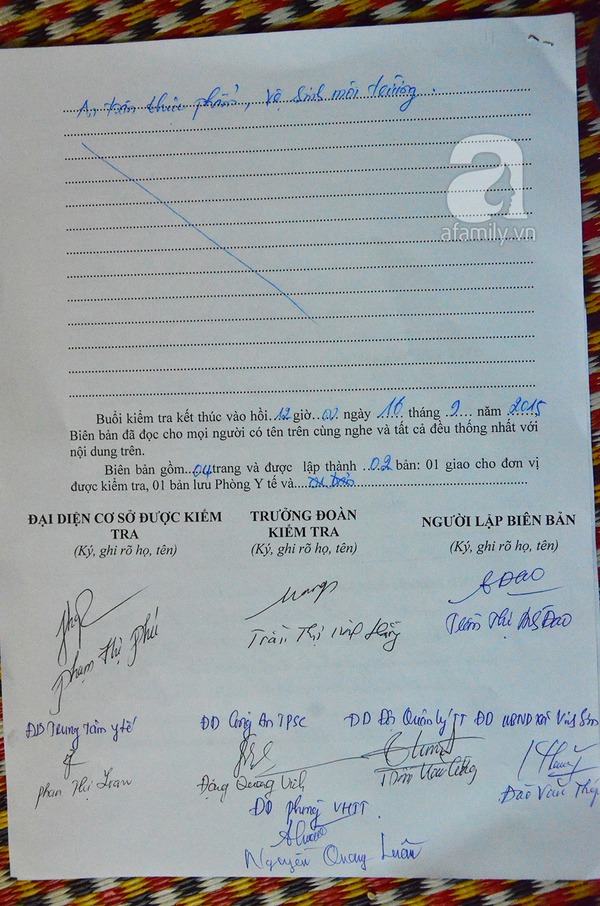 An toàn thực phẩm, vệ sinh môi trường.
a
afamily.vn
Buổi kiểm tra kết thúc vào hồi 12 giờ 00 ngày 16 tháng 9 năm 2015
Biên bản đã đọc cho mọi người có tên trên cùng nghe và tất cả đều thống nhất với
nội dung trên.
Biên bản gồm 04 trang và được lập thành 02 bản: 01 giao cho đơn vị
được kiểm tra, 01 bản lưu Phòng Y tế và
ĐẠI DIỆN CƠ SỞ ĐƯỢC KIỂM TRƯỞNG ĐOÀN NGƯỜI LẬP BIÊN BẢN
TRA KIỂM TRA
(Ký, ghi rõ họ, tên) (Ký, ghi rõ họ, tên) (Ký, ghi rõ họ, tên)
Phạm Thị Phú Trần Thị Hằng Trần Thị Đào
ĐD Trung tâm y tế ĐD Công An TPSC ĐD Đội Quản lý TT ĐD UBND xã
Phan Thị Loan Đặng Quang Vich Đào Văn
ĐD phòng VHTT
Nguyễn Quang Luân